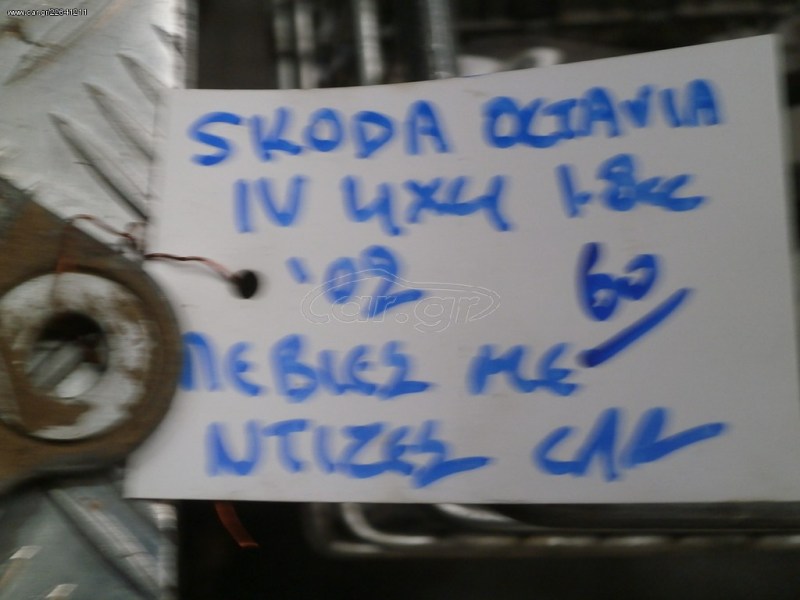 www.car.gr/22641211
SKODA OCTAVIA
IV 4X4 1.8cc
'02 60
car.gr
ΠΕΒΛΕΣ ΜΕ
ΝΤΙΖΕΣ